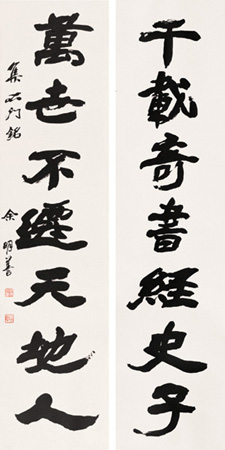 千載奇書經史子
萬世不遷天地人
集石門銘 余明善